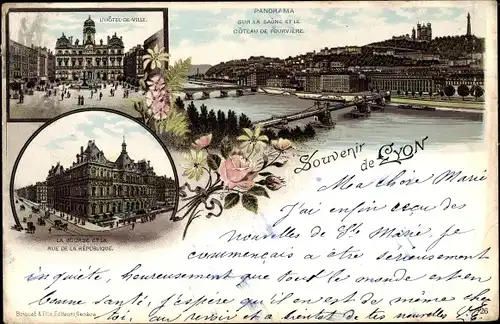 L'HÔTEL-DE-VILLE.
PANORAMA
SUR LA SAÔNE ET LE
CÔTEAU DE FOURVIÈRE.
Souvenir de Lyon
LA BOURSE ET LA
RUE DE LA RÉPUBLIQUE.
Ma chère Marie
J'ai enfin reçu des
nouvelles de Ste Marie, je
commençais à être sérieusement
inquiète, heureusement que tout le monde est en
bonne santé, j'espère qu'il en est de même chez
toi, au revoir et à bientôt de tes nouvelles
Éditeurs, Genève